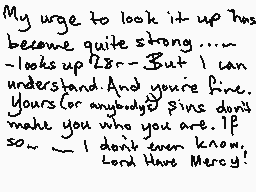 My urge to look it up has
become quite strong.....~
-looks up 28-- But I can
understand. And you're fine.
Yours (or anybody's) sins don't
make you who you are. If
so~ ~ I don't even know.
Lord Have Mercy!